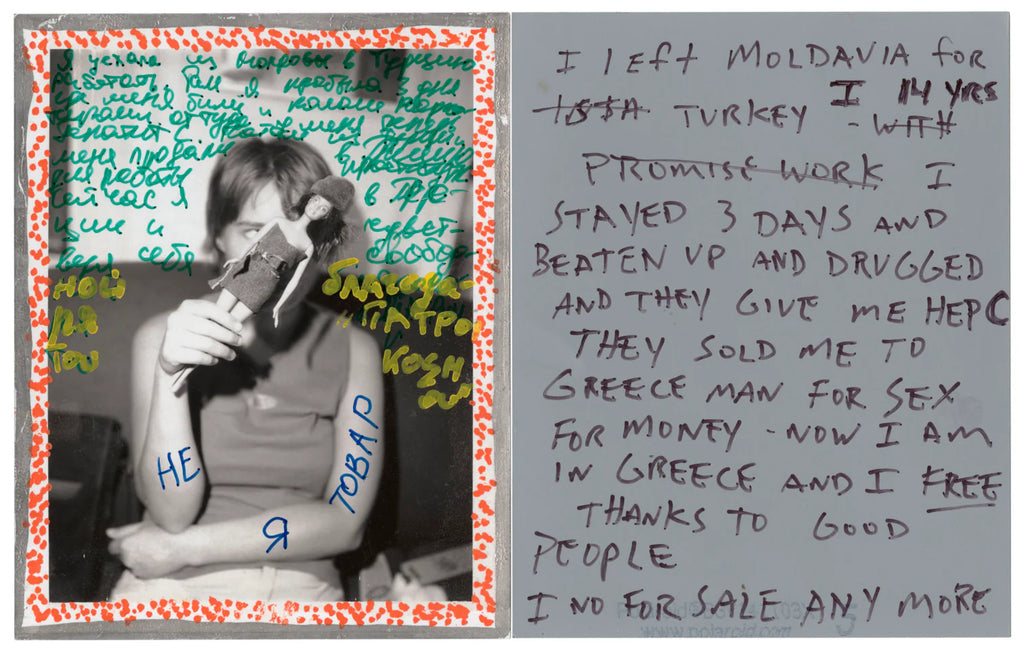 Я уехала из Молдовы в Турцию
работать. Там я пробыла 3 дня
где меня били и кололи нарко-
тиками
гепатит С
меня продали в Грецию
для работы
сейчас я в Гре-
ции и чувст-
себя свобод-
ной благода-
ря
НЕ
Я
ТОВАР
I left MOLDAVIA for
I 14 YRS
TURKEY - WITH
PROMISE WORK I
STAYED 3 DAYS AND
BEATEN UP AND DRUGGED
AND THEY GIVE ME HEP C
THEY SOLD ME TO
GREECE MAN FOR SEX
FOR MONEY - NOW I AM
IN GREECE AND I FREE
THANKS TO GOOD
PEOPLE
I NO FOR SALE ANY MORE
www.polaroid.com